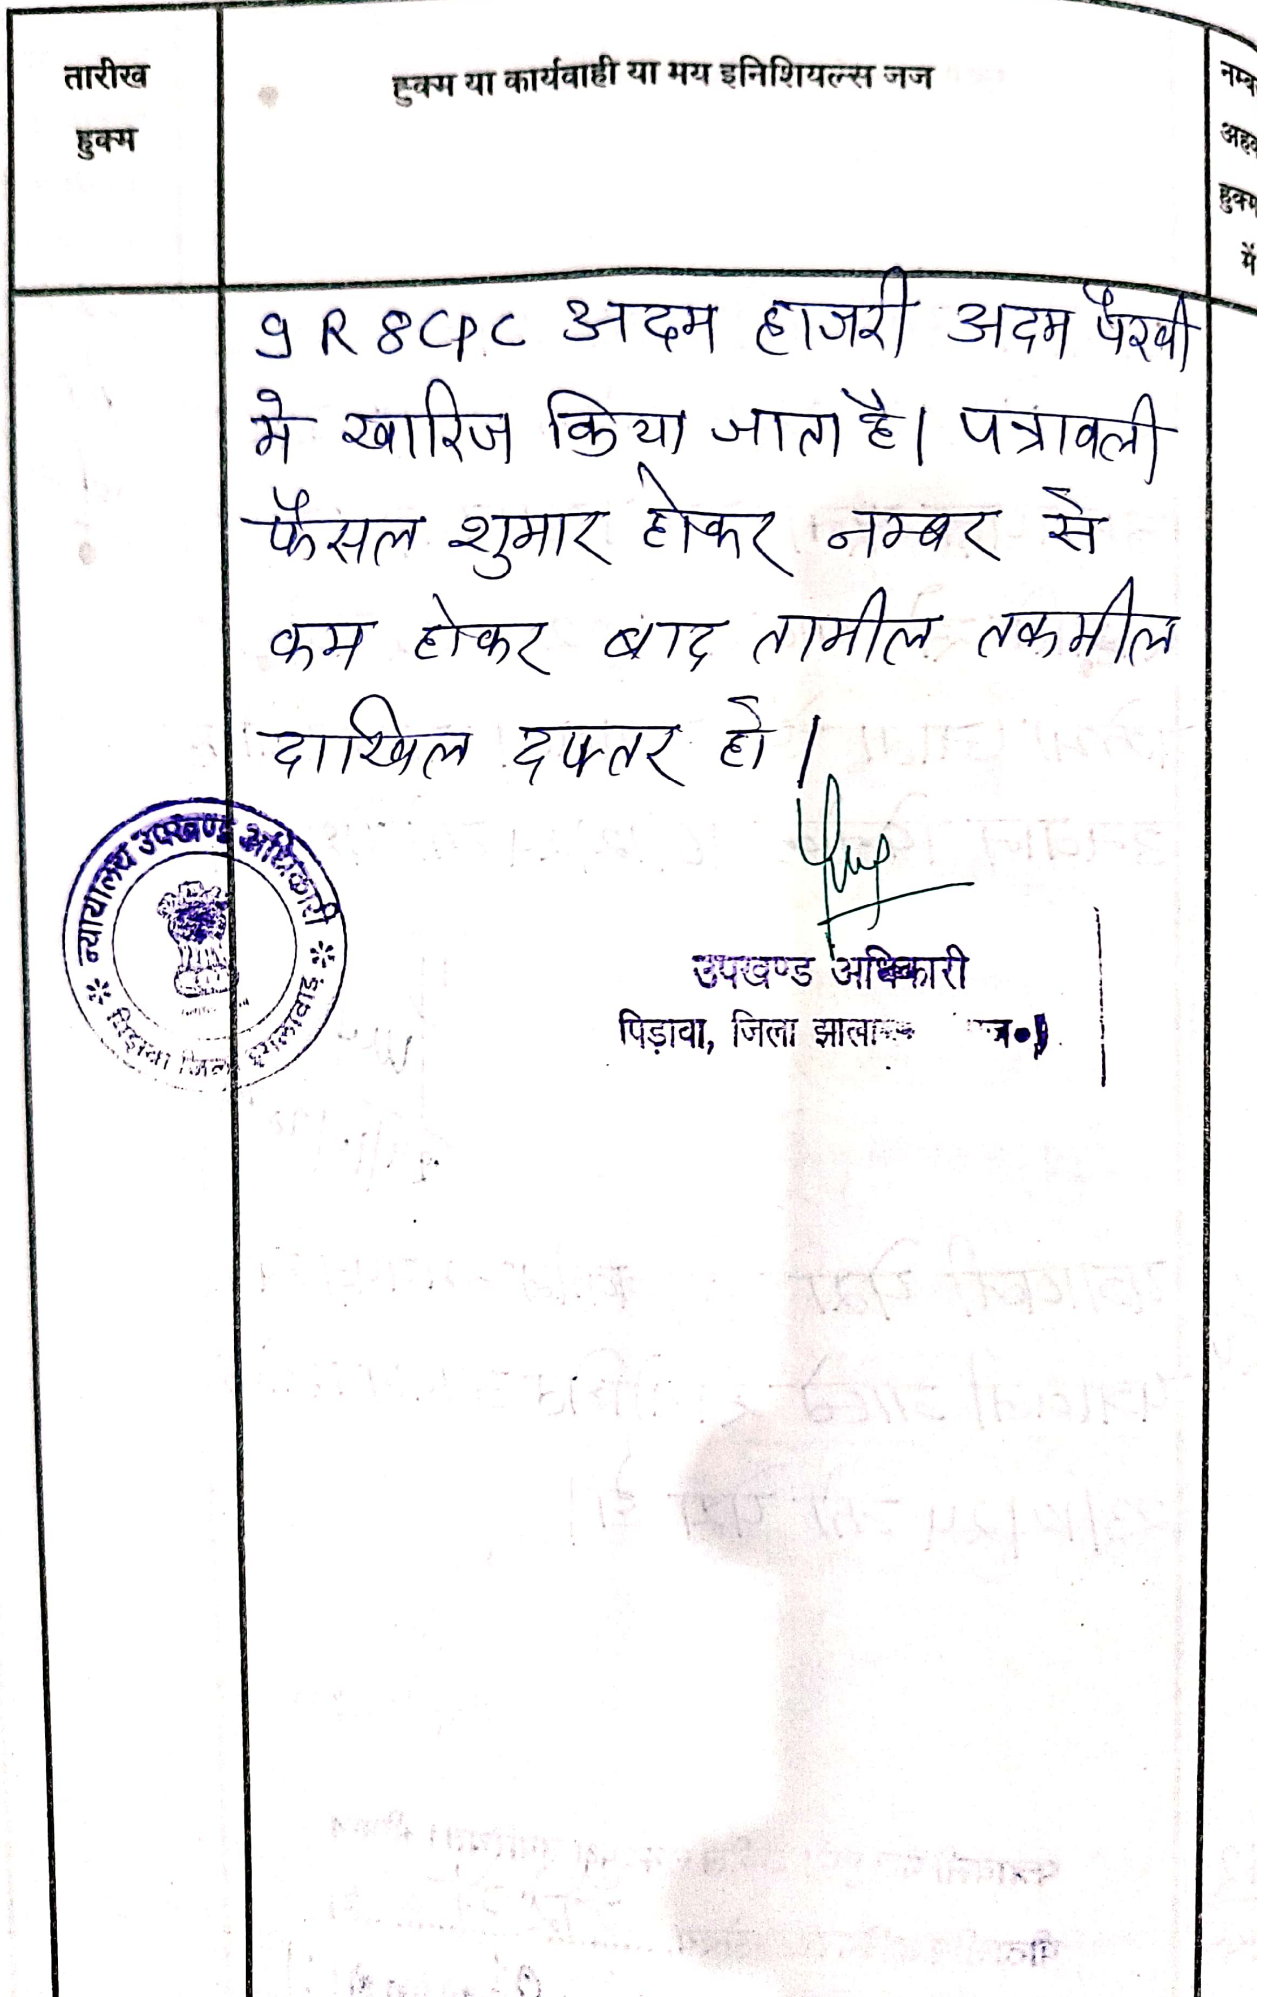 तारीख
हुक्म
हुक्म या कार्यवाही या मय इनिशियल्स जज
नम्ब
अहक
हुक्म
में
9 R 8 CPC अदम हाजरी अदम पैरवी
मे खारिज किया जाता है। पत्रावली
फैसल शुमार होकर नम्बर से
कम होकर बाद तामील तकमील
दाखिल दफ्तर हो।
न्यायालय उपखण्ड अधिकारी
पिड़ावा जिला झालावाड़
उपखण्ड अधिकारी
पिड़ावा, जिला